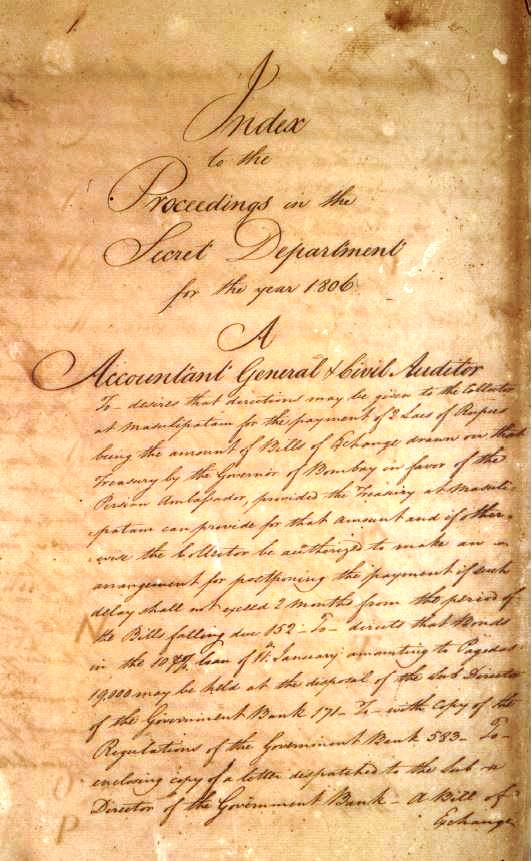 Index
to the
Proceedings in the
Secret Department
for the year 1806
A
Accountant General & Civil Auditor
To - desires that directions may be given to the Collector
at Masulipatam for the payment of 3 Lacs of Rupees
being the amount of Bills of Exchange drawn on that
Treasury by the Governor of Bombay in favor of the
Persian Ambassador, provided the Treasury at Masuli-
patam can provide for that amount and if other-
wise the Collector be authorized to make an
arrangement for postponing the payment if such
delay shall not exceed 2 months from the period of
the Bills falling due 152 - To - directs that Bonds
in the 10 loan of January amounting to Pagodas
19,000 may be held at the disposal of the Sub Director
of the Government Bank 171 - To - with Copy of the
Regulations of the Government Bank 583 - To -
enclosing copy of a letter dispatched to the Sub
Director of the Government Bank - A Bill of
Exchange
N
P